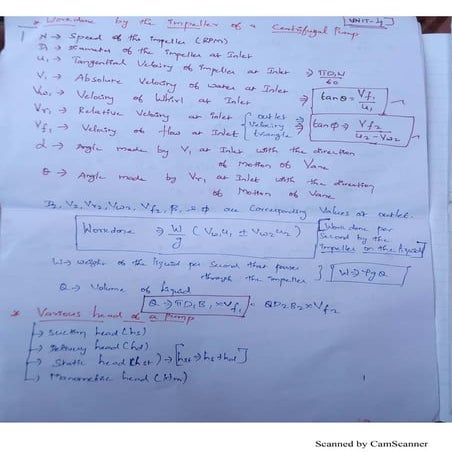 * Workdone by the impeller of a Centrifugal Pump
UNIT-4
1 N → Speed of the impeller (RPM)
D₁ → Diameter of the impeller at Inlet
u₁ → Tangential Velocity of impeller at Inlet ⇒ πD₁N/60
V₁ → Absolute Velocity of water at Inlet
Vw₁ → Velocity of Whirl at Inlet
tanθ = Vf₁/u₁
Vr₁ → Relative Velocity at inlet
Vf₁ → Velocity of flow at Inlet
outlet Velocity triangle
tanϕ ⇒ Vf₂/u₂-Vw₂
α → Angle made by V₁ at Inlet with the direction
of Motion of Vane
θ → Angle made by Vr₁ at Inlet with the direction
of Motion of Vane
D₂, V₂, Vr₂, Vw₂, Vf₂, β, & ϕ are Corresponding Values at outlet.
Workdone ⇒ W/g (Vw₁u₁ ± Vw₂u₂)
Workdone per
Second by the
impeller on the liquid
W → weight of the liquid per Second that passes
through the impeller
W → ρgQ
Q → Volume of Liquid
Q → πD₁B₁ × Vf₁ = πD₂B₂ × Vf₂
* Various head of a pump
→ Suction head (hs)
→ Delivery head (hd)
→ Static head (hst) → [hst → hs + hd]
→ Manometric head (Hm)
1
Scanned by CamScanner